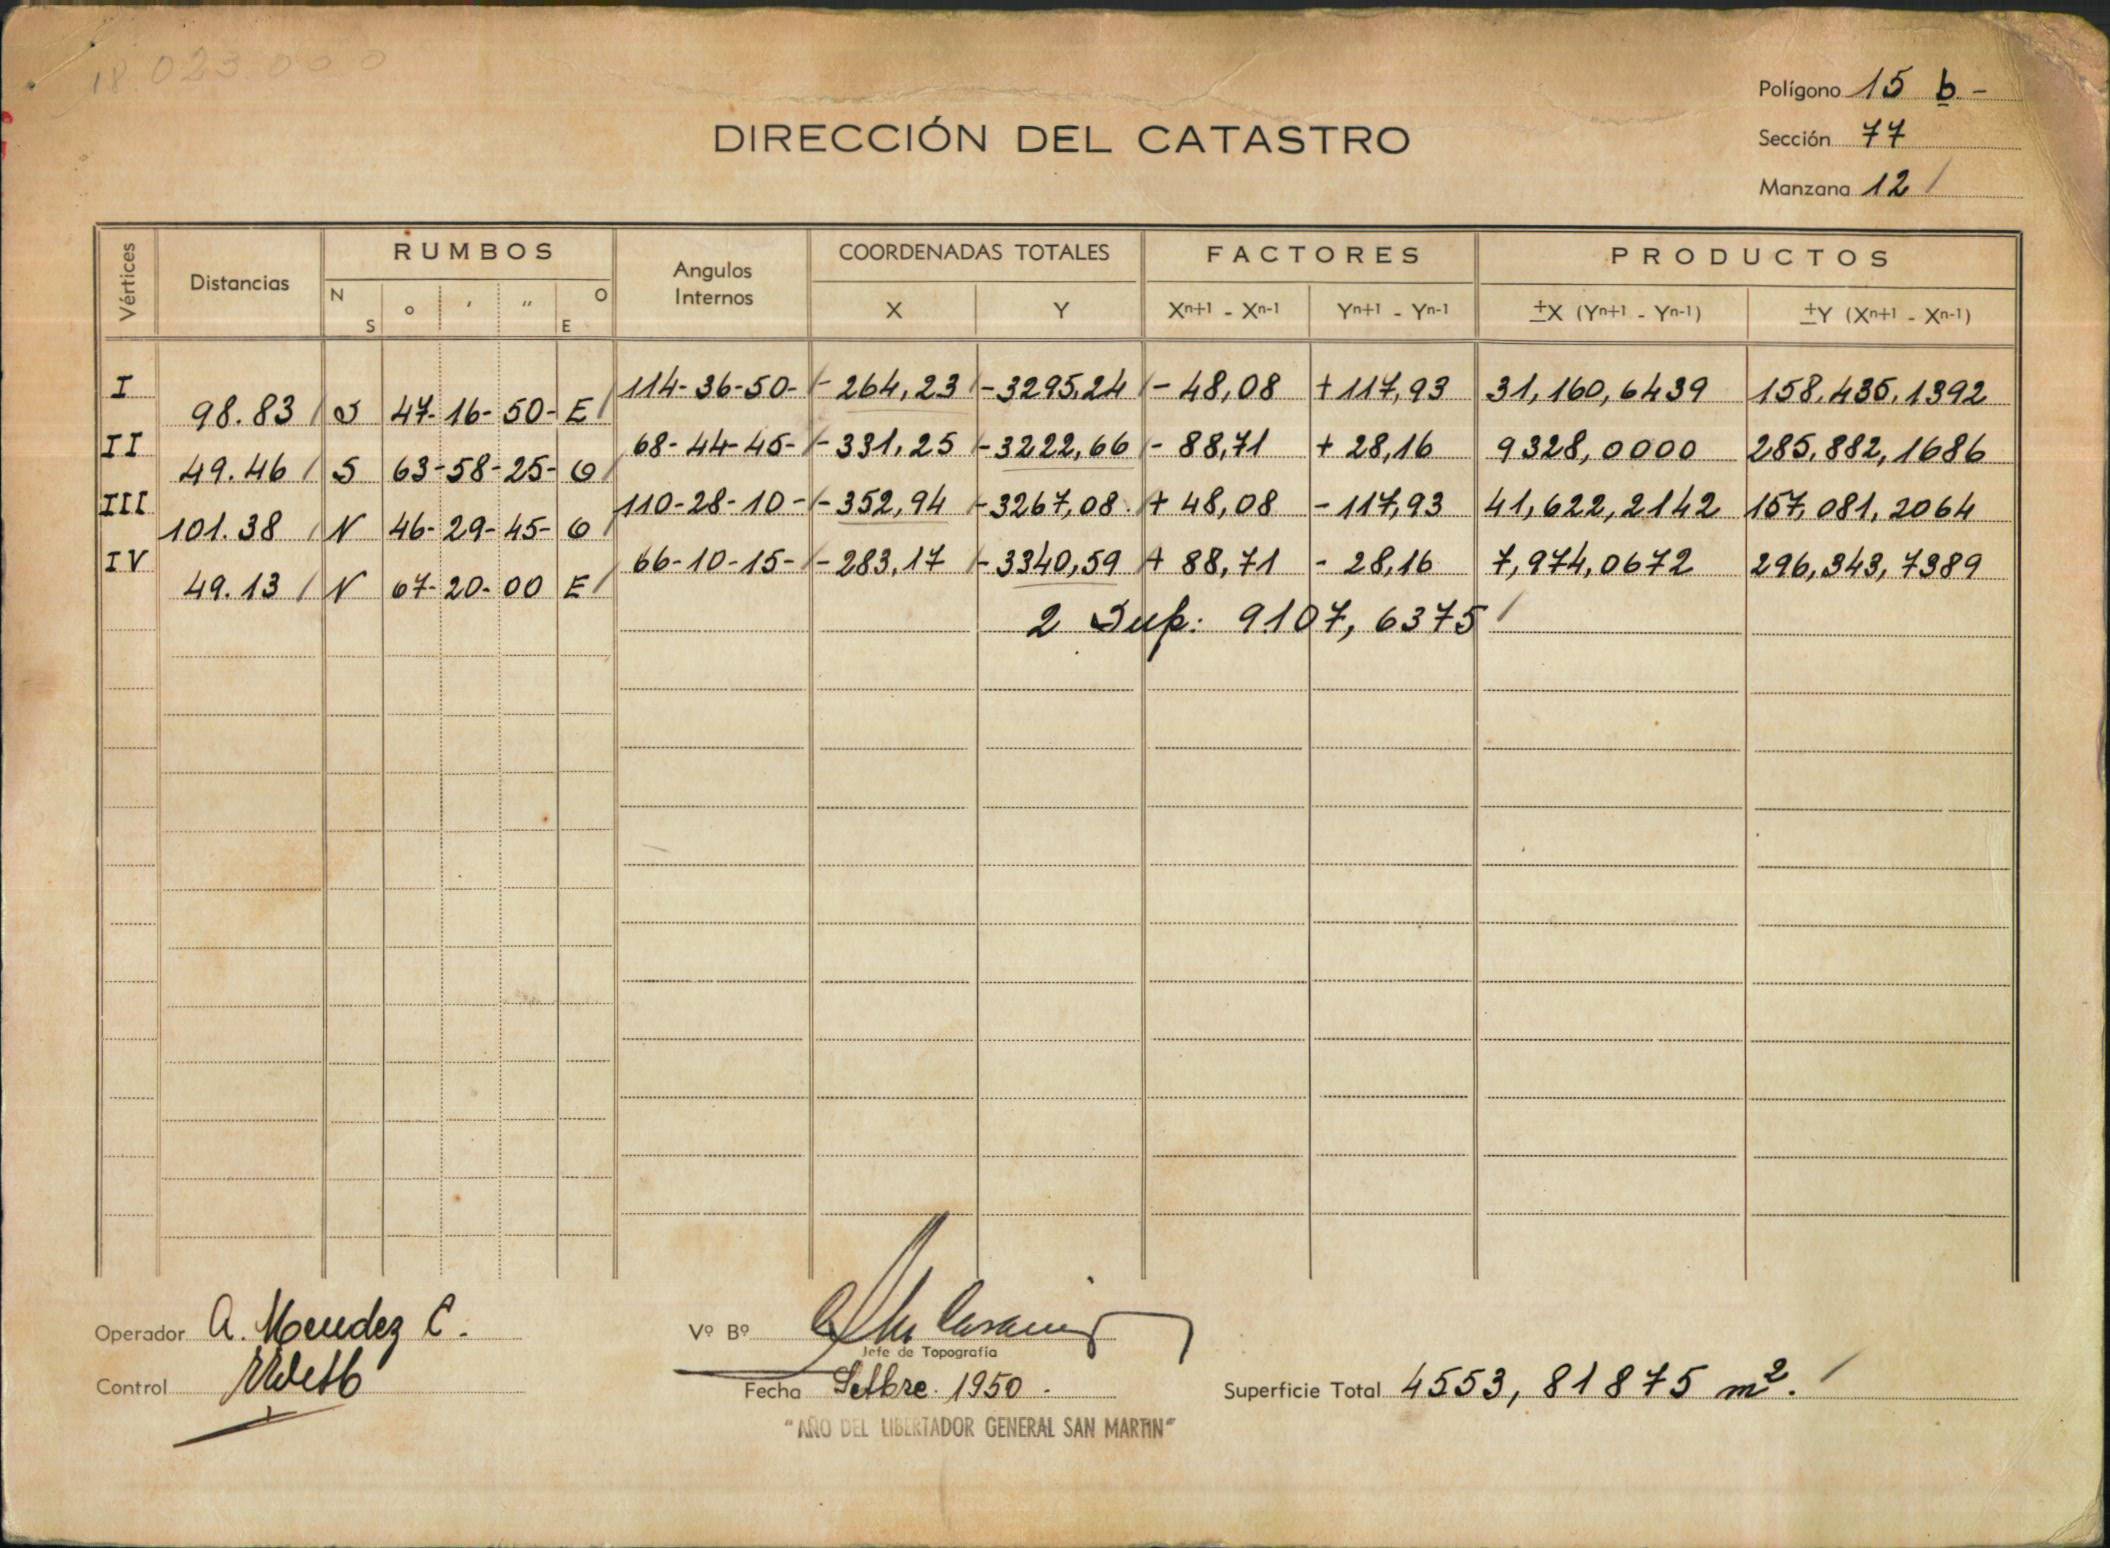 18.023.000
Polígono 15 b -
DIRECCIÓN DEL CATASTRO
Sección 77
Manzana 12 /
Vértices Distancias RUMBOS Angulos Internos COORDENADAS TOTALES FACTORES PRODUCTOS
N S ° ' " O E X Y Xn+1 - Xn-1 Yn+1 - Yn-1 ±X (Yn+1 - Yn-1) ±Y (Xn+1 - Xn-1)
I 114-36-50- - 264,23 - 3295,24 - 48,08 + 117,93 31,160,6439 158,435,1392
98.83 / S 47-16-50- E /
II 68-44-45- - 331,25 - 3222,66 - 88,71 + 28,16 9328,0000 285,882,1686
49.46 / S 63-58-25- O /
III 110-28-10- - 352,94 - 3267,08 + 48,08 - 117,93 41,622,2142 157,081,2064
101.38 / N 46-29-45- O /
IV 66-10-15- - 283,17 - 3340,59 + 88,71 - 28,16 7,974,0672 296,343,7389
49.13 / N 67-20-00 E /
2 Sup: 9107,6375 /
Operador A. Mendez C. Vº Bº
Jefe de Topografía
Control Fecha Setbre. 1950. Superficie Total 4553,81875 m². /
"AÑO DEL LIBERTADOR GENERAL SAN MARTIN"